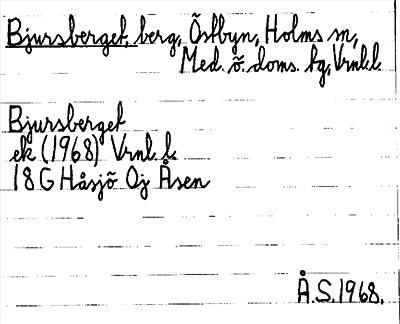 Bjursberget, berg, Östbyn, Holms sn,
Med. ö. doms. tg, Vrnl. l.
Bjursberget
ek (1968) Vrnl. l.
18G Håsjö Oj Åsen
Å.S. 1968.